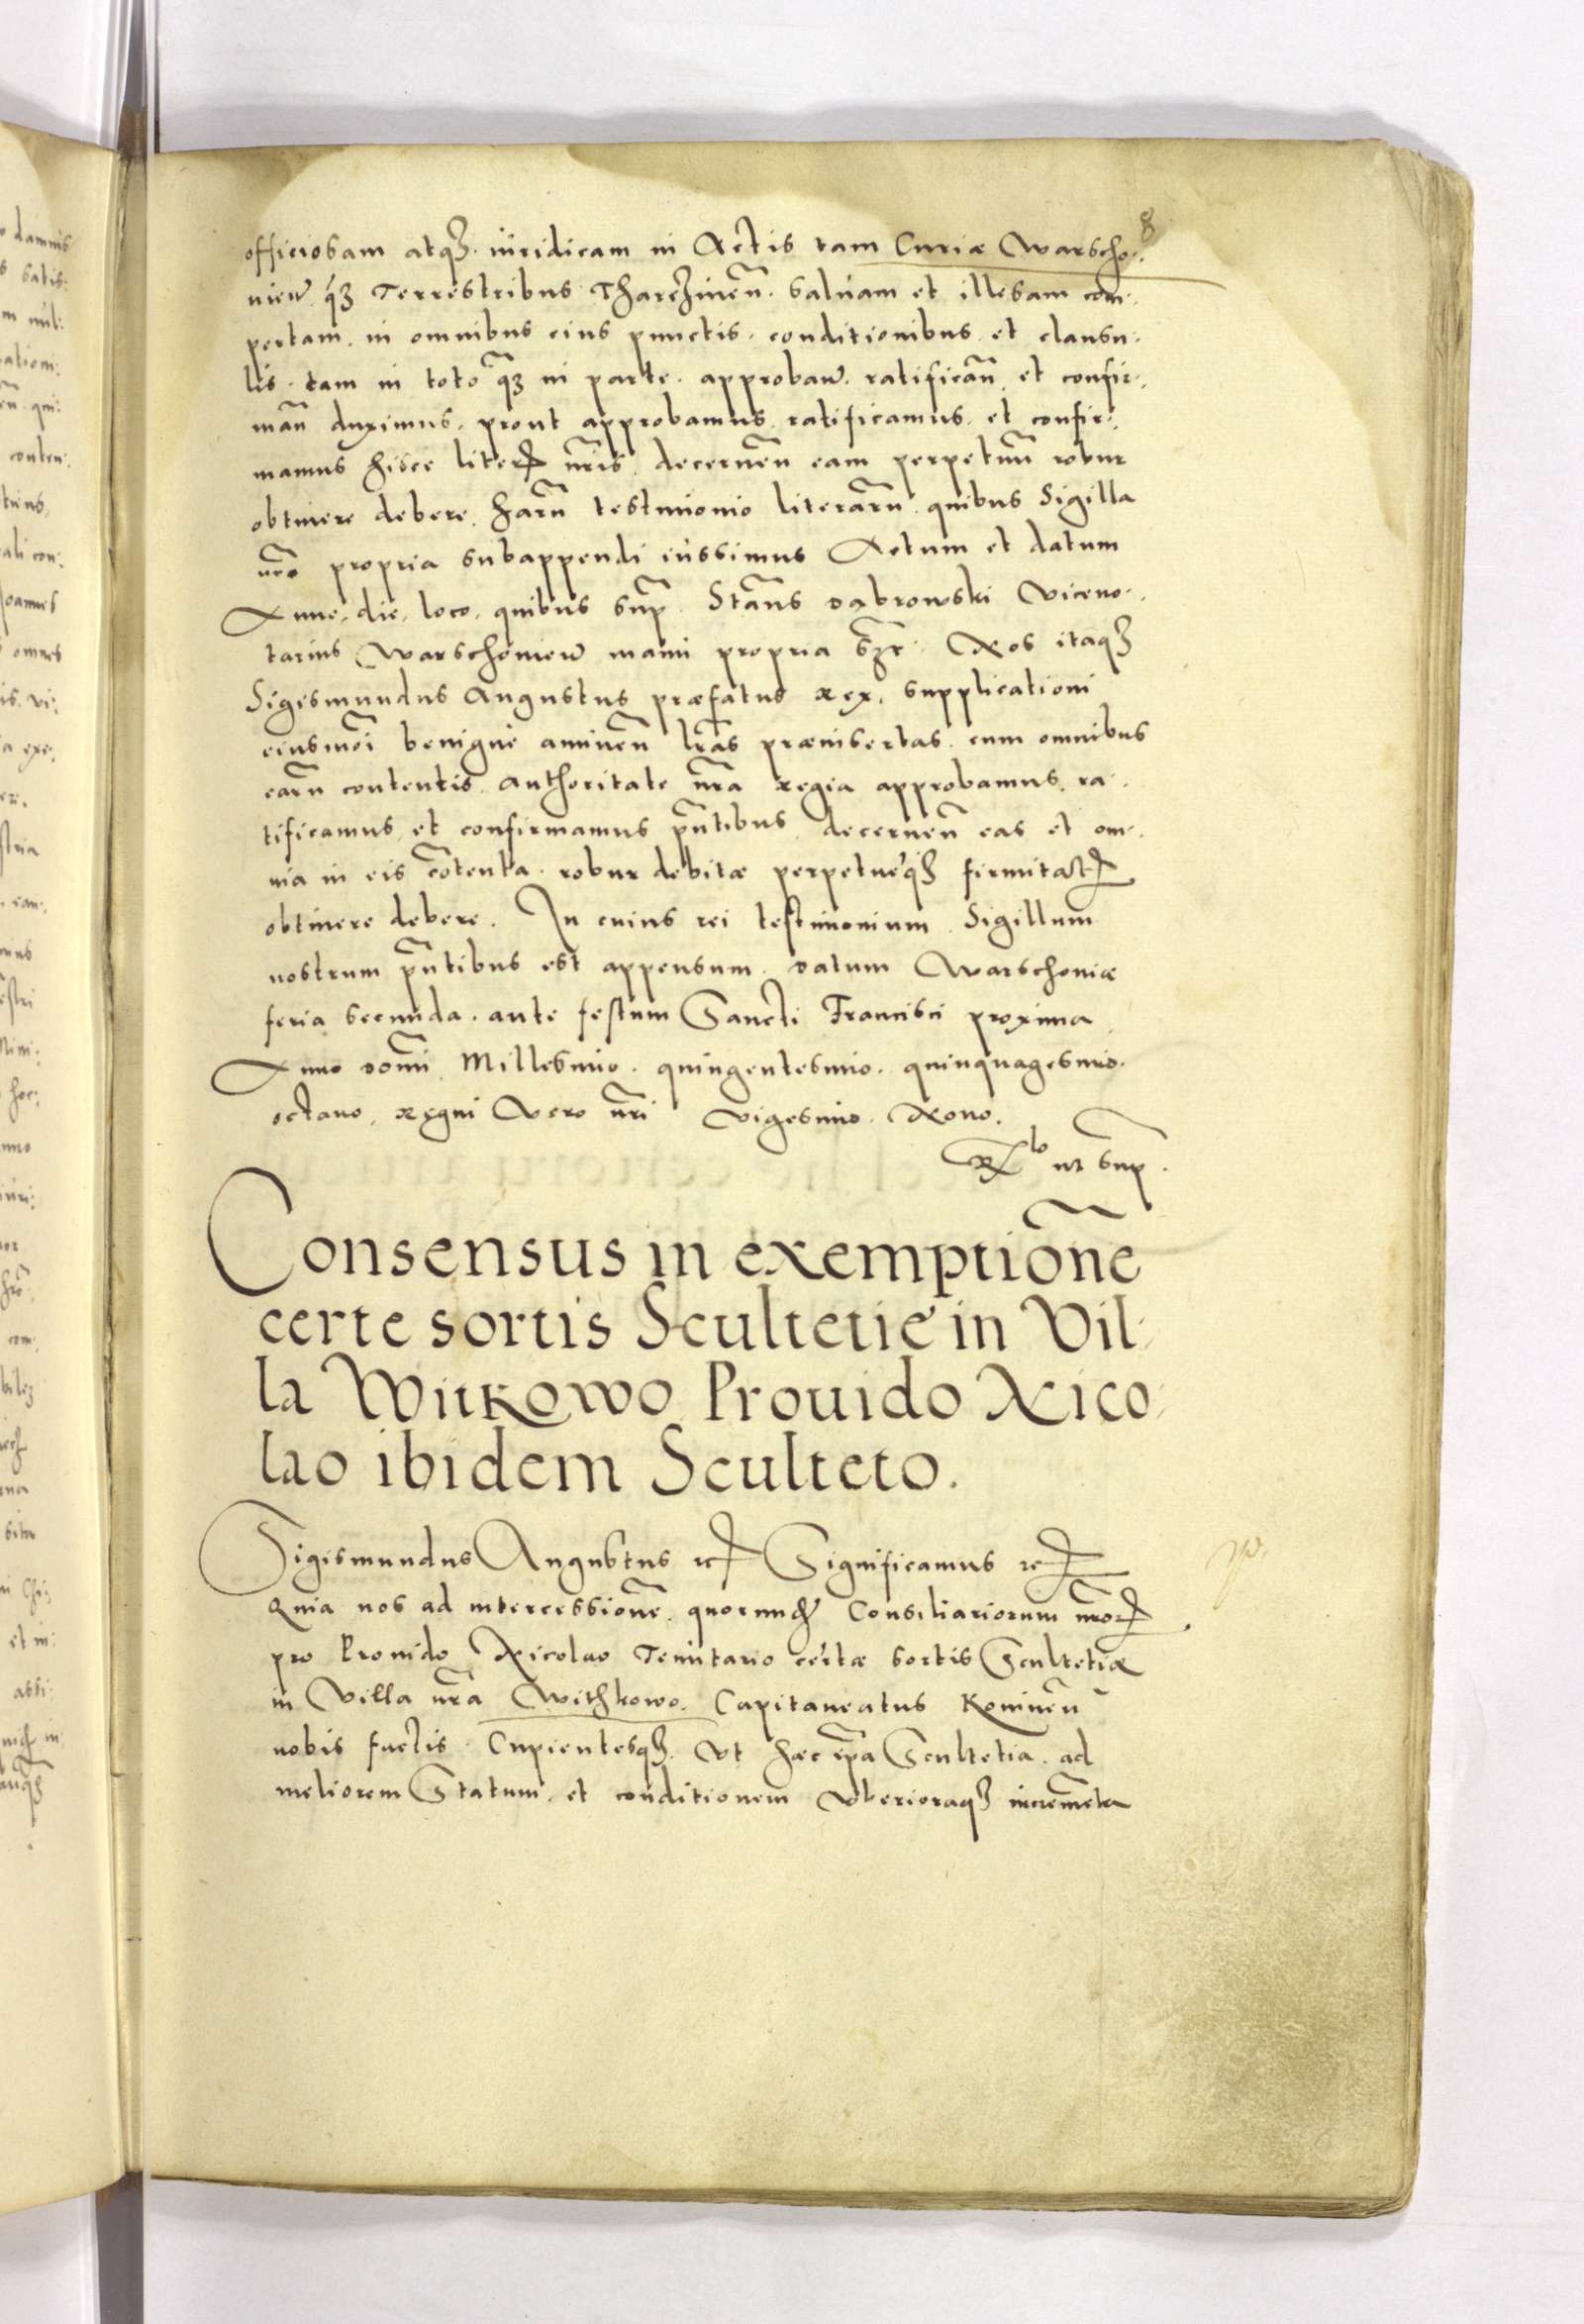 8
officiosam atq3. iuridicam in Actis tam Curiæ Warscho:
uien̄. q́3 Terrestribus Tharczinen̄. saluam et illesam com:
pertam. in omnibus eius punctis. conditionibus. et clausu:
lis. tam in toto q̄3 in parte. approban̄. ratifican̄. et confir:
man̄ duximus. prout approbamus. ratificamus. et confir:
mamus hisce literꝭ nr̄is. decernen̄ eam perpetuū robur
obtinere debere. harū testimonio literarū. quibus Sigilla
nr̄a propria subappendi iussimus Actum et datum
Anno. die. loco. quibus sup̄. Stan̄s dąbrowski Viceno:
tarius Warschouien̄ manu propria sszt. Nos itaq3
Sigismundus Augustus præfatus Rex. supplicationi
eiusmōi benigne annuen̄ lr̄as præinsertas. cum omnibus
earū contentis. authoritate nr̄a regia approbamus. ra:
tificamus. et confirmamus pn̄tibus decernen̄ eas et om:
nia in eis cōtenta. robur debitæ perpetueq3 firmitatꝭ
obtinere debere. In cuius rei testimonium. Sigillum
nostrum pn̄tibus est appensum. datum Warschouiæ
feria secunda. ante festum Sancti Francisci proxima
Anno dom̄i Millesimo. quingentesimo. quinquagesimo.
octauo. regni Vero nr̄i Vigesimo. Nono.
Rlo ut sup̄.
Consensus in exemptiōne
certe sortis Scultetie in Vil:
la Witkowo Prouido Nico:
lao ibidem Sculteto.
Sigismundus Augustus ꝛcꝭ Significamus ꝛcꝭ
Quia nos ad intercessionē. quorundꝭ Consiliariorum nr̄orꝭ
pro Prouido Nicolao Tenutario certæ sortis Scultetiæ
in Villa nr̄a Withkowo. Capitaneatus Koninen̄
nobis factis. Cupientesq3. Vt hæc ip̄a Scultetia. ad
meliorem Statum. et conditionem Vberioraq3 incremēta